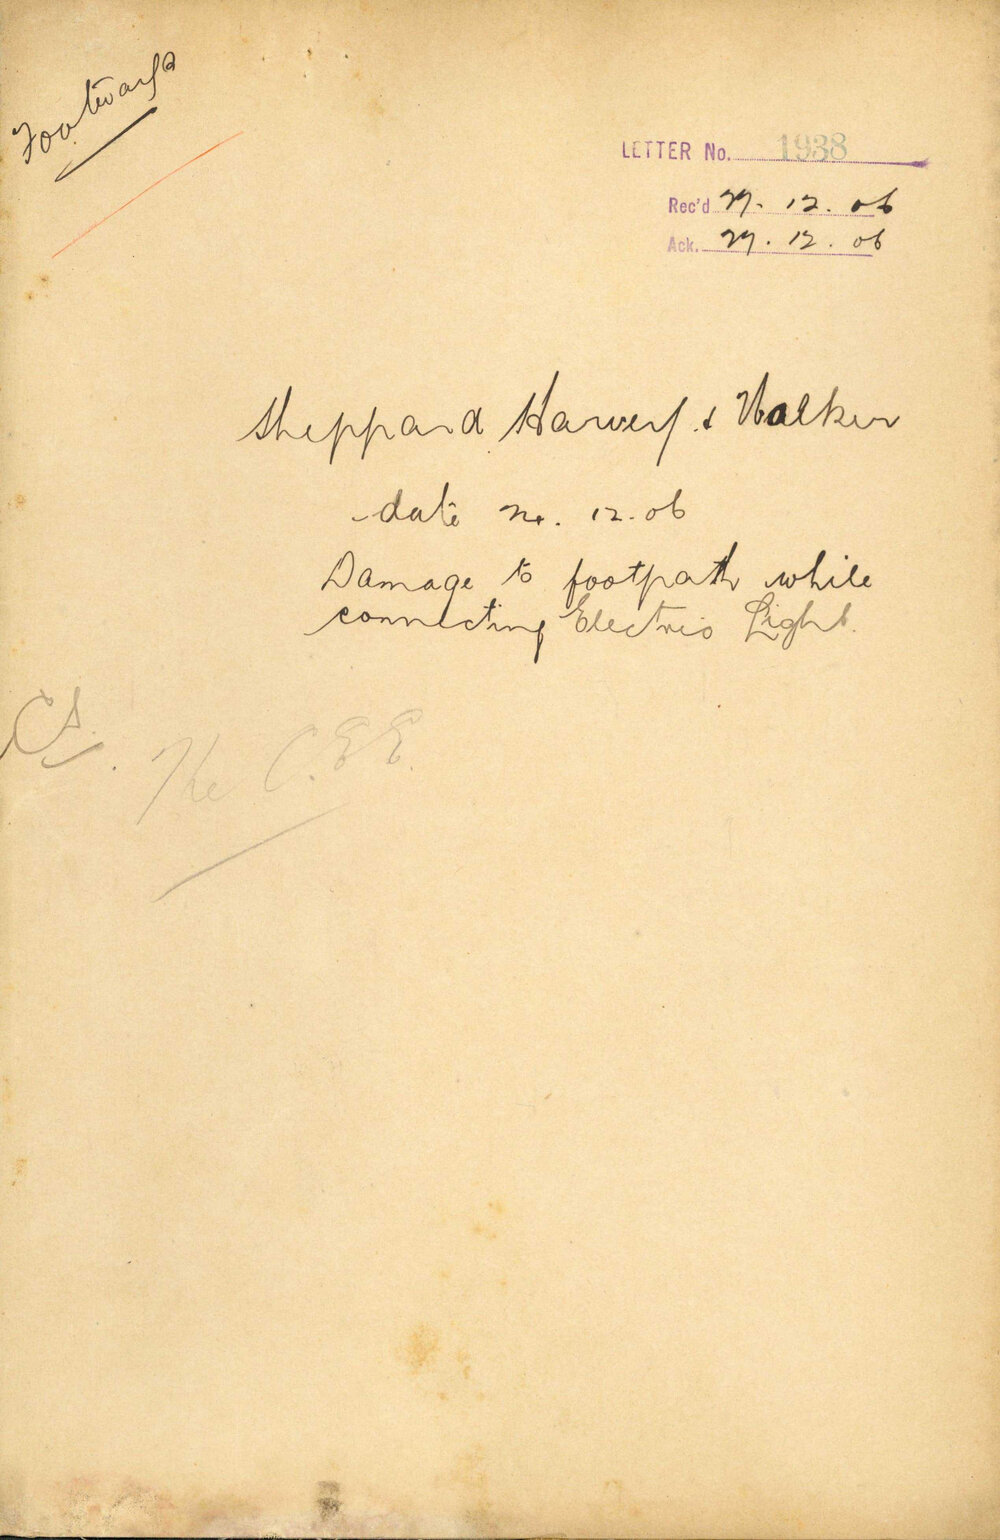 Footways
LETTER No. 1938
Rec'd 27. 12. 06
Ack. 27. 12. 06
Sheppard Harvey & Walker
date 24. 12. 06
Damage to footpath while
connecting Electric Light.
CS.
The C.E.E.